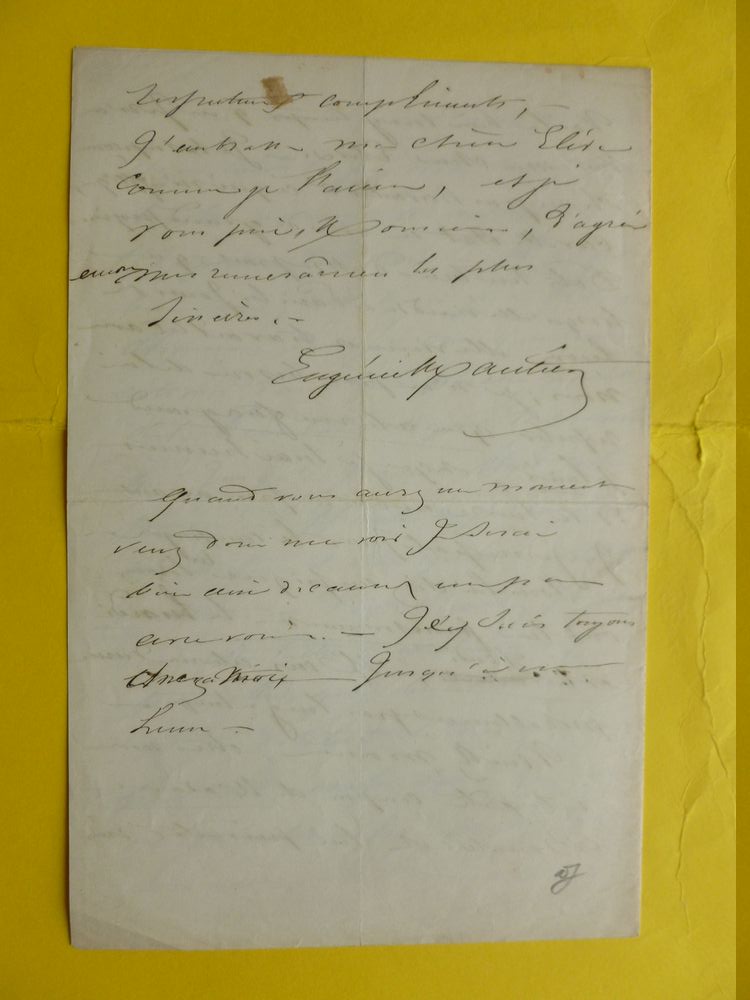 respectueux compliments, —
J'embrasse ma chère Elise
comme je l'aime, et je
vous prie, Monsieur, d'agréer
encore mes remerciements les plus
sincères. —
Eugénie Gautier
Quand vous aurez un moment
venez donc me voir je serai
bien aise de causer un peu
avec vous. — J'y suis toujours
jusqu'à une
heure —